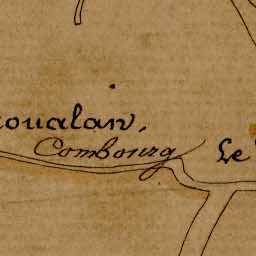 oualan,
Combourg
Le